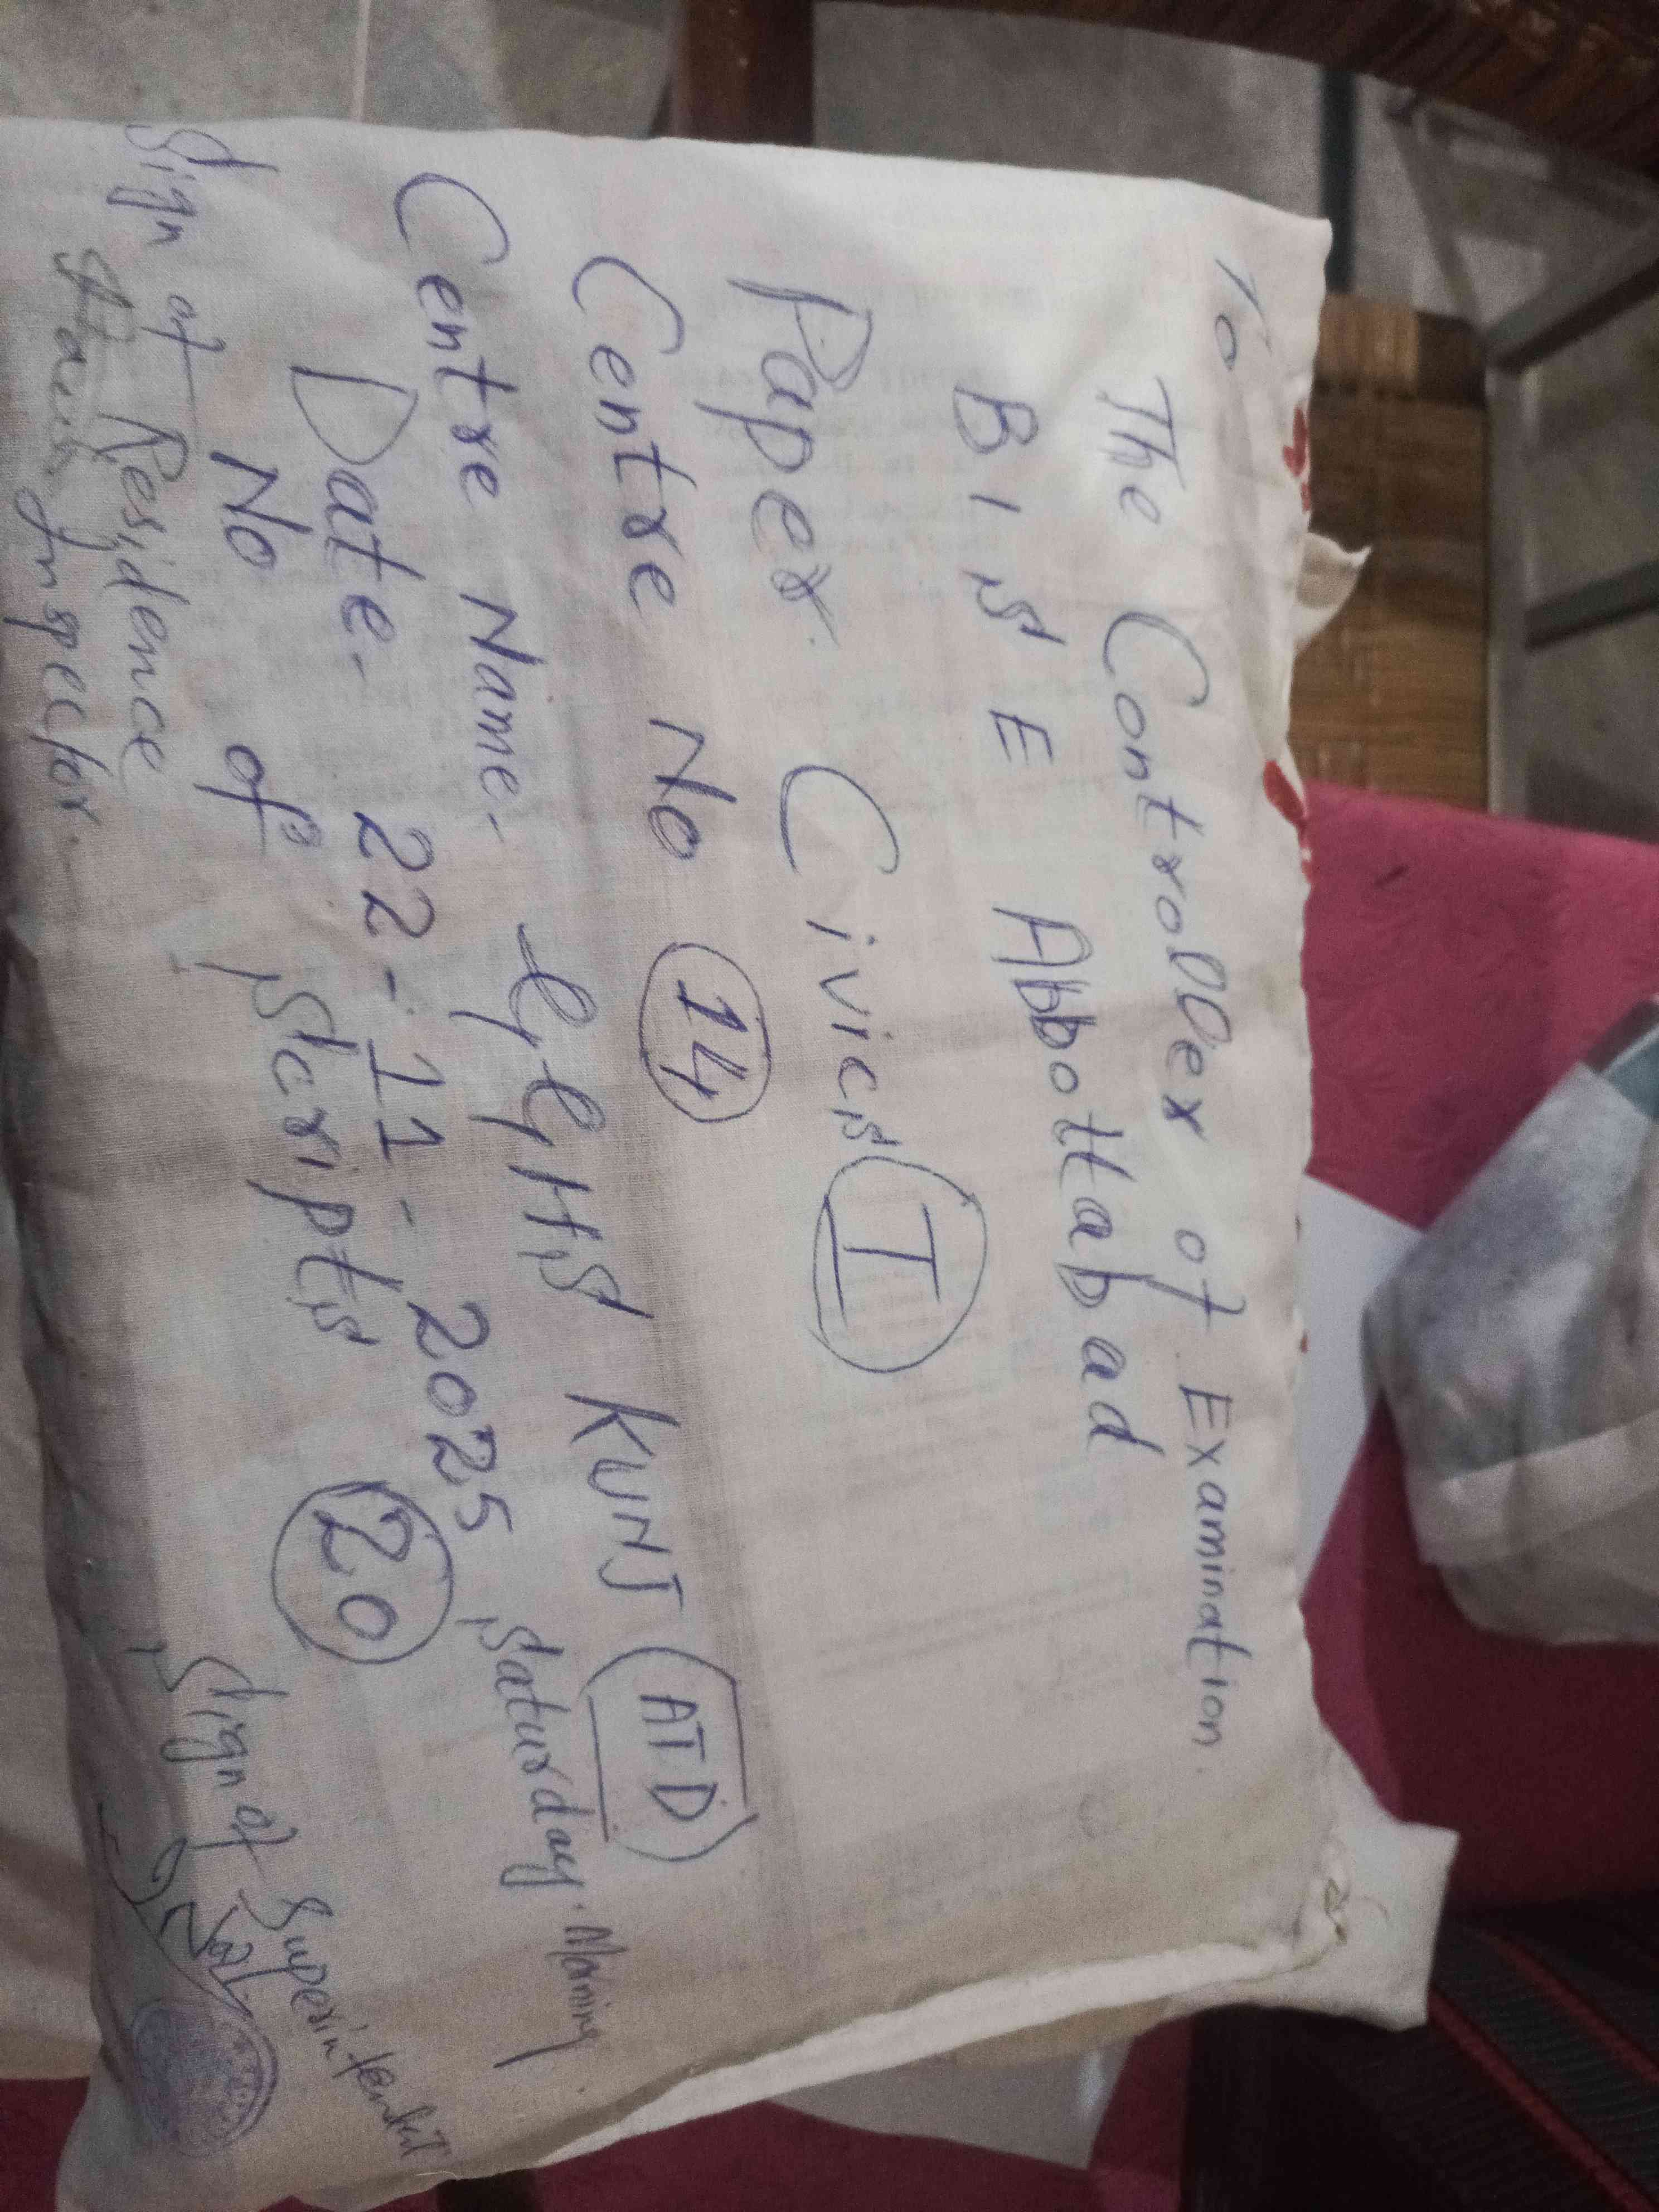 To
The Controller of Examination.
B I S E Abbottabad
Paper. Civics I
Centre No 14
Centre Name. GGHS KUNJ (ATD)
Date. 22-11-2025 Saturday. Morning.
No of Scripts 20
Sign of Residence Inspector.
Sign of Superintendent